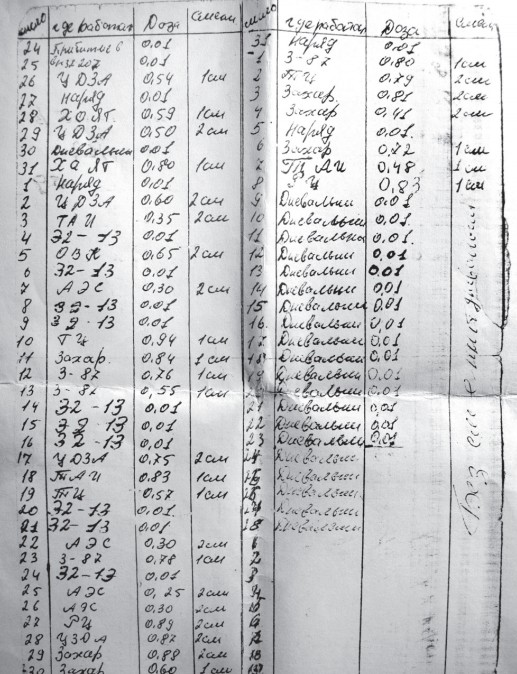 число где работал Доза смена
24 Прибытие в 0,01
25 в/ч 0,01
26 ЦДЗА 0,54 1см
27 наряд 0,01
28 ХОЯТ 0,59 1см
29 ЦДЗА 0,50 2см
30 Дневальный 0,01
31 ХОЯТ 0,80 1см
1 Наряд 0,01
2 ЦДЗА 0,60 2см
3 ТАИ 0,35 2см
4 Э2-13 0,01
5 ОВК 0,65 2см
6 Э2-13 0,01
7 АЭС 0,30 2см
8 Э2-13 0,01
9 Э2-13 0,01
10 ТЦ 0,94 1см
11 Захар. 0,84 1см
12 З-87 0,76 1см
13 З-87 0,55 1см
14 Э2-13 0,01
15 Э2-13 0,01
16 Э2-13 0,01
17 ЦДЗА 0,75 2см
18 ТАИ 0,83 1см
19 ТЦ 0,57 1см
20 Э2-13 0,01
21 Э2-13 0,01
22 АЭС 0,30 2см
23 З-87 0,78 1см
24 Э2-13 0,01
25 АЭС 0,25 2см
26 АЭС 0,30 2см
27 РЦ 0,89 2см
28 ЦЗОА 0,87 2см
29 Захар 0,88 2см
30 Захар 0,60 1см
число где работал Доза смена
31 наряд 0,01
1 З-87 0,80 1см
2 ТЦ 0,79 2см
3 Захар. 0,81 2см
4 Захар 0,41 2см
5 Наряд 0,01
6 Захар 0,72 1см
7 ТЦ АИ 0,48 1см
8 0,83 1см
9 Дневальни 0,01
10 Дневальни 0,01
11 Дневальни 0,01
12 Дневальни 0,01
13 Дневальни 0,01
14 Дневальни 0,01
15 Дневальни 0,01
16 Дневальни 0,01
17 Дневальни 0,01
18 Дневальни 0,01
19 Дневальни 0,01
Дневальни 0,01
21 Дневальни 0,01
22 Дневальни 0,01
23 Дневальни 0,01
24 Дневальни
Дневальни
Дневальни
Дневальни
Дневальни